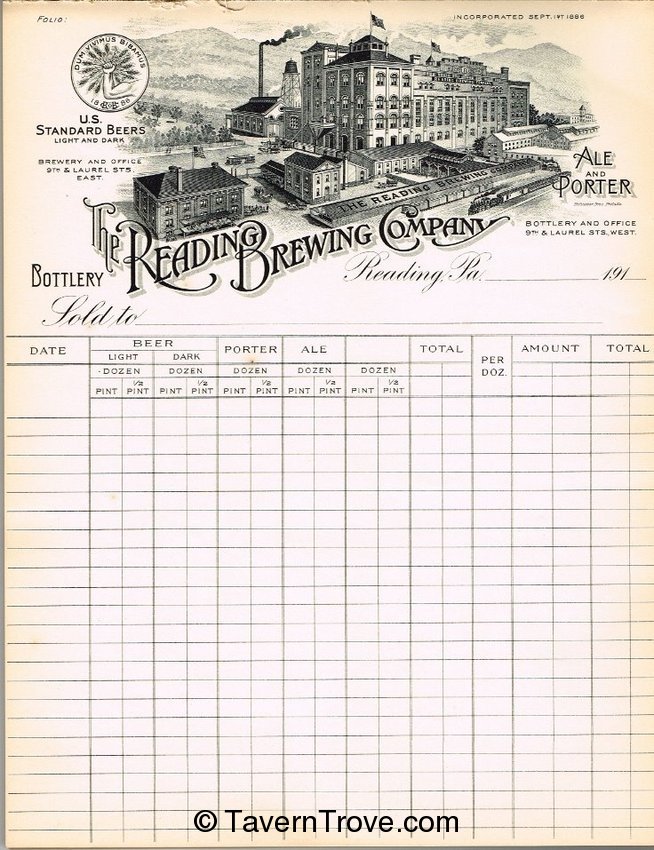 FOLIO:
INCORPORATED SEPT. 1ST 1886
DUM VIVIMUS BIBAMUS
1886
U.S.
STANDARD BEERS
LIGHT AND DARK
BREWERY AND OFFICE
9TH & LAUREL STS.
EAST.
ALE
AND
PORTER
THE READING BREWING CO.
BOTTLERY AND OFFICE
9TH & LAUREL STS, WEST.
The READING BREWING COMPANY
BOTTLERY
Reading, Pa. 191
Sold to
DATE BEER PORTER ALE TOTAL PER DOZ. AMOUNT TOTAL
LIGHT DARK
DOZEN DOZEN DOZEN DOZEN DOZEN
PINT 1/2 PINT PINT 1/2 PINT PINT 1/2 PINT PINT 1/2 PINT PINT 1/2 PINT
© TavernTrove.com